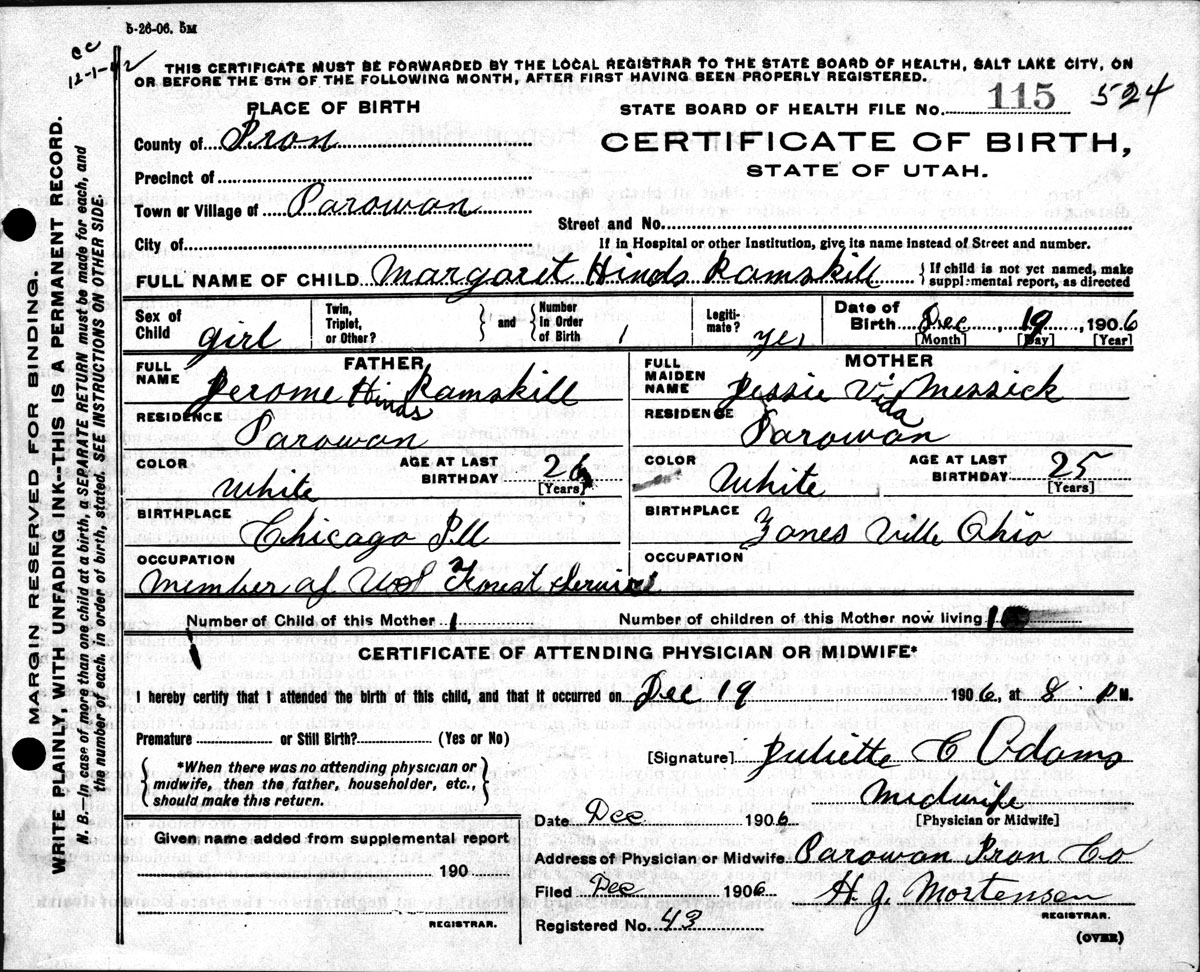 5-26-06. 5M
cc
12-1-42
THIS CERTIFICATE MUST BE FORWARDED BY THE LOCAL REGISTRAR TO THE STATE BOARD OF HEALTH, SALT LAKE CITY, ON
OR BEFORE THE 5TH OF THE FOLLOWING MONTH, AFTER FIRST HAVING BEEN PROPERLY REGISTERED.
MARGIN RESERVED FOR BINDING.
WRITE PLAINLY, WITH UNFADING INK—THIS IS A PERMANENT RECORD.
N. B.—In case of more than one child at a birth, a SEPARATE RETURN must be made for each, and
the number of each, in order of birth, stated. SEE INSTRUCTIONS ON OTHER SIDE.
PLACE OF BIRTH
STATE BOARD OF HEALTH FILE No. 115 524
County of Iron
CERTIFICATE OF BIRTH,
STATE OF UTAH.
Precinct of
Town or Village of Parowan
Street and No.
City of
If in Hospital or other Institution, give its name instead of Street and number.
FULL NAME OF CHILD Margaret Hinds Ramskill
{ If child is not yet named, make
supplemental report, as directed
Sex of Child girl
Twin, Triplet, or Other? } and { Number in Order of Birth 1
Legitimate? yes
Date of Birth Dec, 19, 1906
[Month] [Day] [Year]
FATHER
FULL NAME Jerome Hinds Ramskill
MOTHER
FULL MAIDEN NAME Jessie Vida Messick
RESIDENCE Parowan
RESIDENCE Parowan
COLOR White AGE AT LAST BIRTHDAY 26 [Years]
COLOR White AGE AT LAST BIRTHDAY 25 [Years]
BIRTHPLACE Chicago Ill
BIRTHPLACE Zones Ville Ohio
OCCUPATION
OCCUPATION
Member of US Forest Service
Number of Child of this Mother 1 Number of children of this Mother now living 1
CERTIFICATE OF ATTENDING PHYSICIAN OR MIDWIFE*
I hereby certify that I attended the birth of this child, and that it occurred on Dec 19 1906, at 8 P M.
Premature or Still Birth? (Yes or No)
[Signature] Juliette C Adams
{ *When there was no attending physician or
midwife, then the father, householder, etc.,
should make this return. }
Midwife
[Physician or Midwife]
Date Dec 1906
Given name added from supplemental report
190
REGISTRAR.
Address of Physician or Midwife Parowan Iron Co
Filed Dec 1906 H. J. Mortensen
REGISTRAR.
Registered No. 43
(OVER)